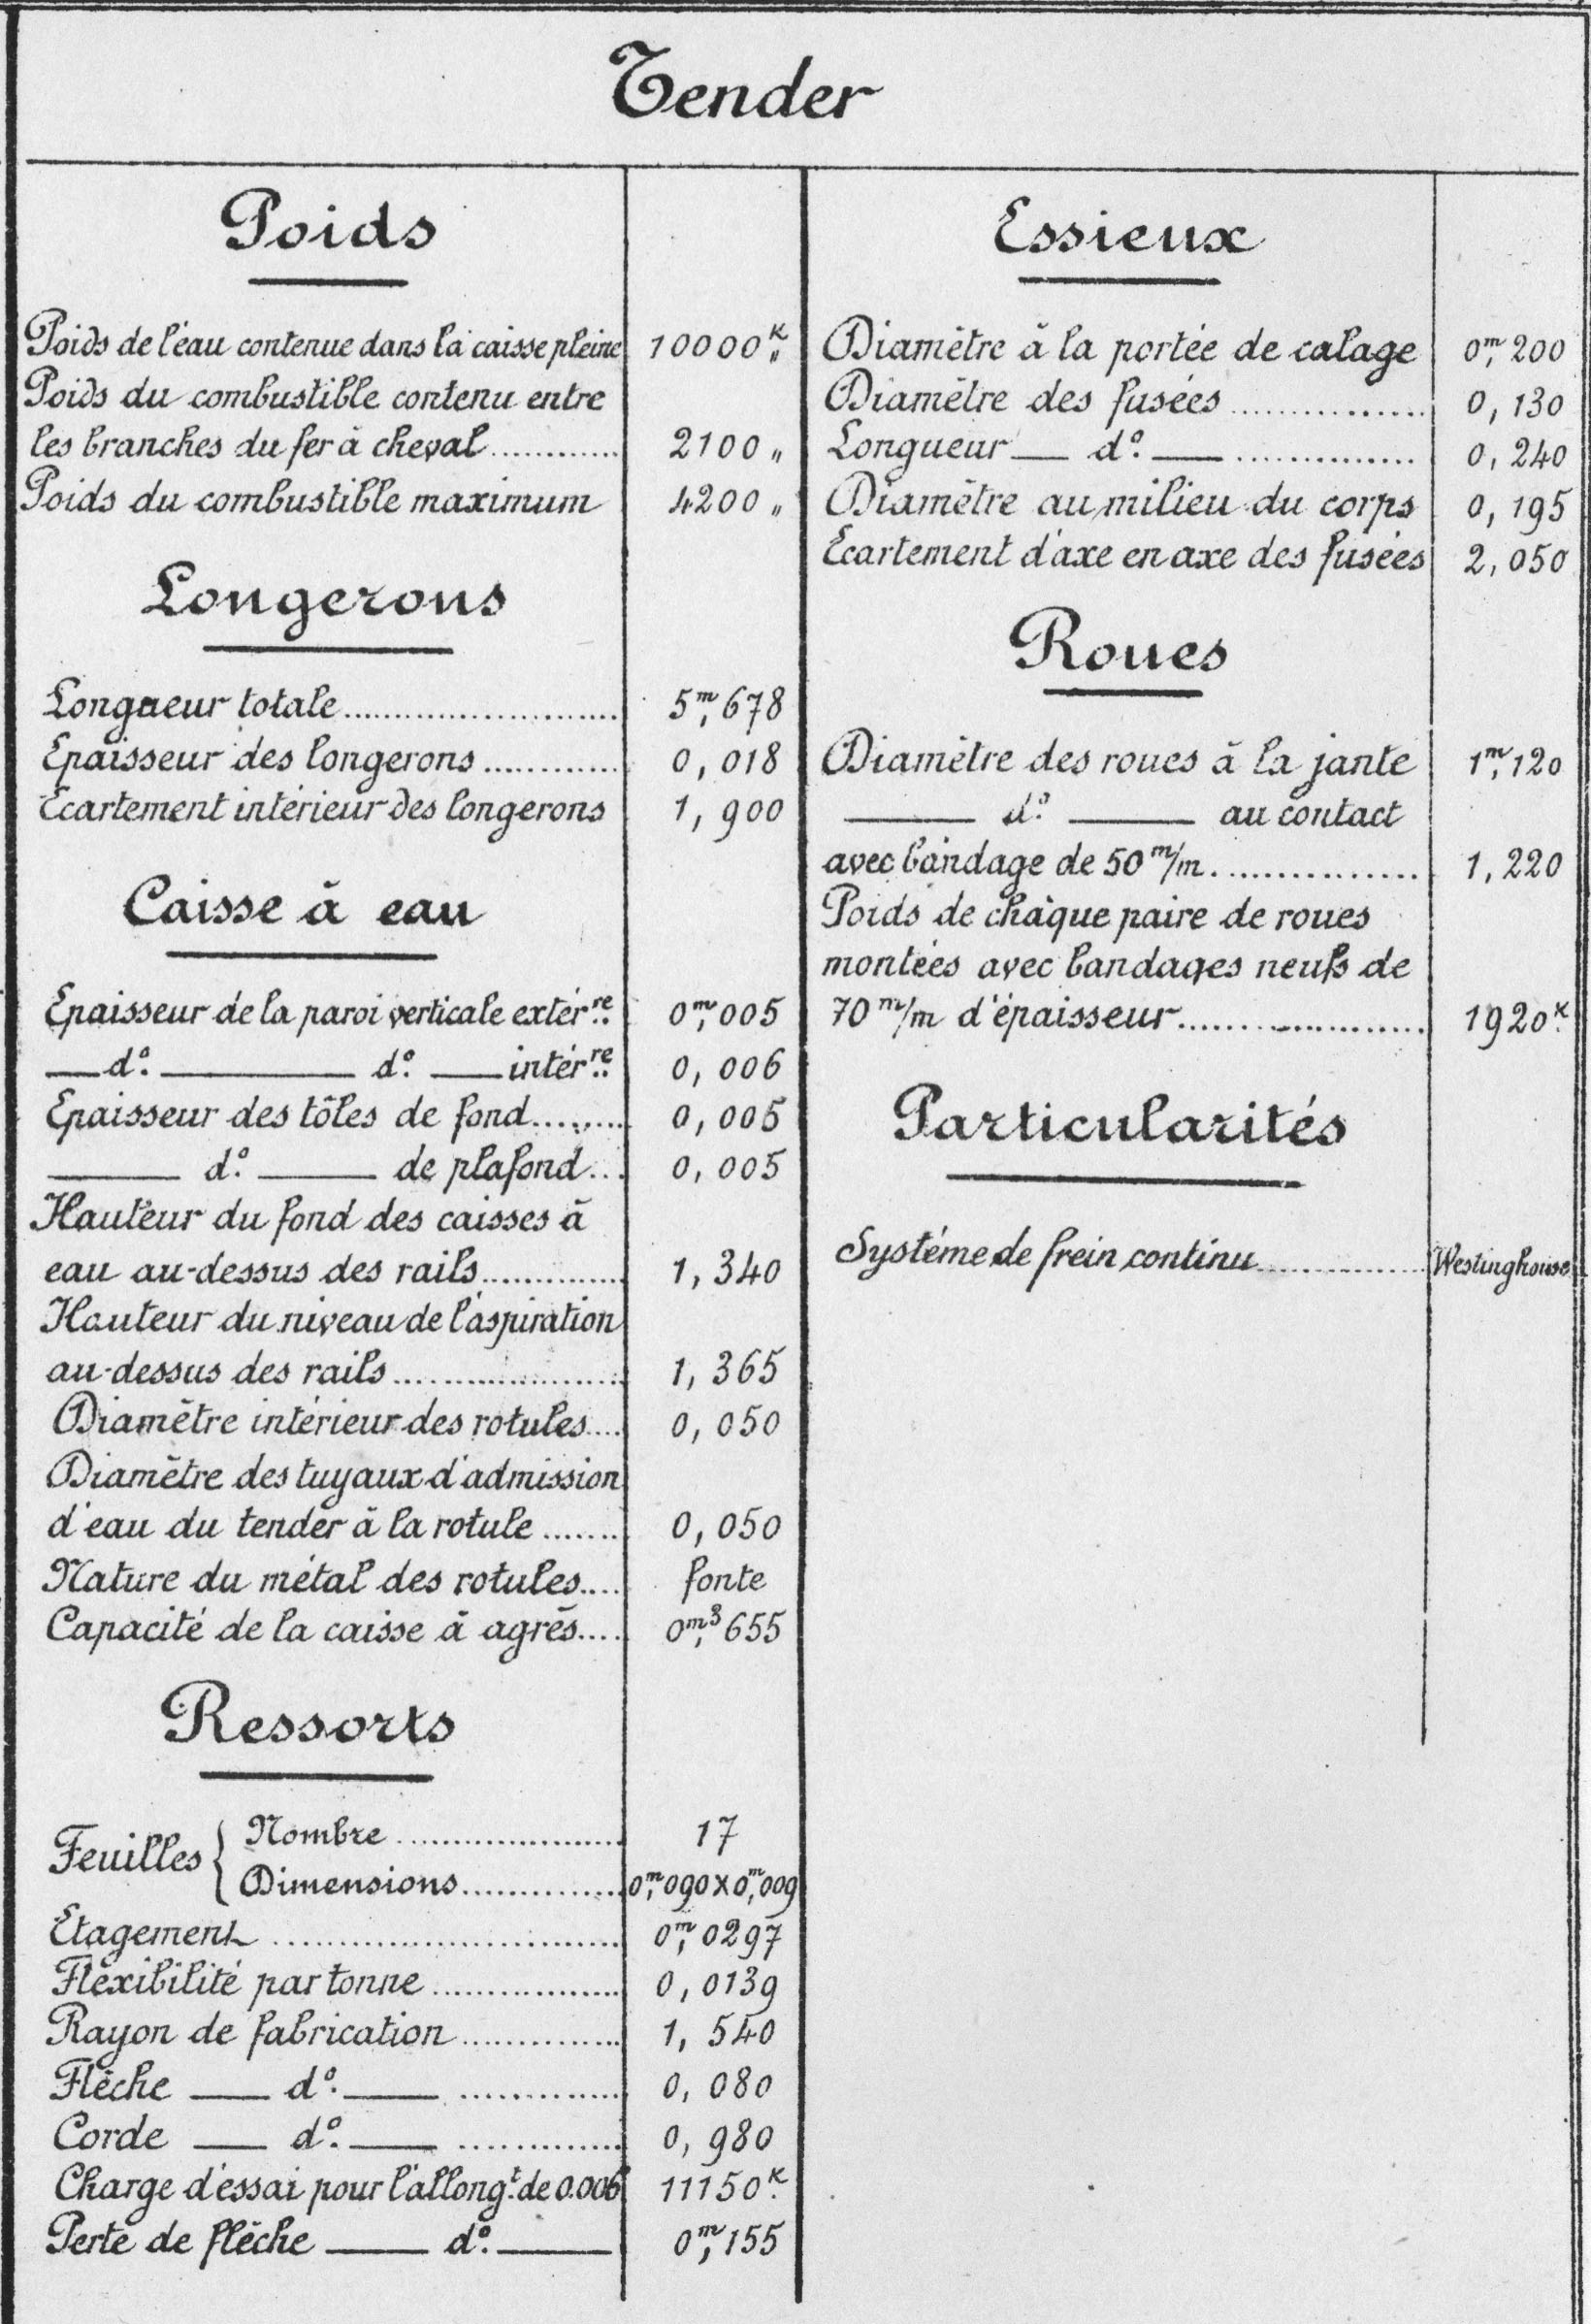 Tender
Poids
Poids de l'eau contenue dans la caisse pleine 10000K "
Poids du combustible contenu entre
les branches du fer à cheval............ 2100 "
Poids du combustible maximum 4200 "
Longerons
Longueur totale........................ 5m,678
Epaisseur des longerons ............ 0,018
Ecartement intérieur des longerons 1,900
Caisse à eau
Epaisseur de la paroi verticale extérre 0m,005
— do. ——— do. — intérre 0,006
Epaisseur des tôles de fond......... 0,005
——— do. ——— de plafond... 0,005
Hauteur du fond des caisses à
eau au-dessus des rails............. 1,340
Hauteur du niveau de l'aspiration
au-dessus des rails ..................... 1,365
Diamètre intérieur des rotules.... 0,050
Diamètre des tuyaux d'admission
d'eau du tender à la rotule ........ 0,050
Nature du métal des rotules.... fonte
Capacité de la caisse à agrès.... 0m3,655
Ressorts
Feuilles { Nombre ..................... 17
Dimensions.............. 0m,090 x 0m,009
Etagement .............................. 0m,0297
Fléxibilité par tonne ................. 0,0139
Rayon de fabrication .............. 1,540
Flèche — do. — .............. 0,080
Corde — do. — .............. 0,980
Charge d'essai pour l'allongt. de 0.006 11150K.
Perte de flèche — do. — 0m,155
Essieux
Diamètre à la portée de calage 0m,200
Diamètre des fusées ............... 0,130
Longueur — do. — .............. 0,240
Diamètre au milieu du corps 0,195
Ecartement d'axe en axe des fusées 2,050
Roues
Diamètre des roues à la jante 1m,120
——— do. ——— au contact
avec bandage de 50 m/m ............... 1,220
Poids de chaque paire de roues
montées avec bandages neufs de
70 m/m d'épaisseur.................... 1920K.
Particularités
Système de frein continu.............. Westinghouse